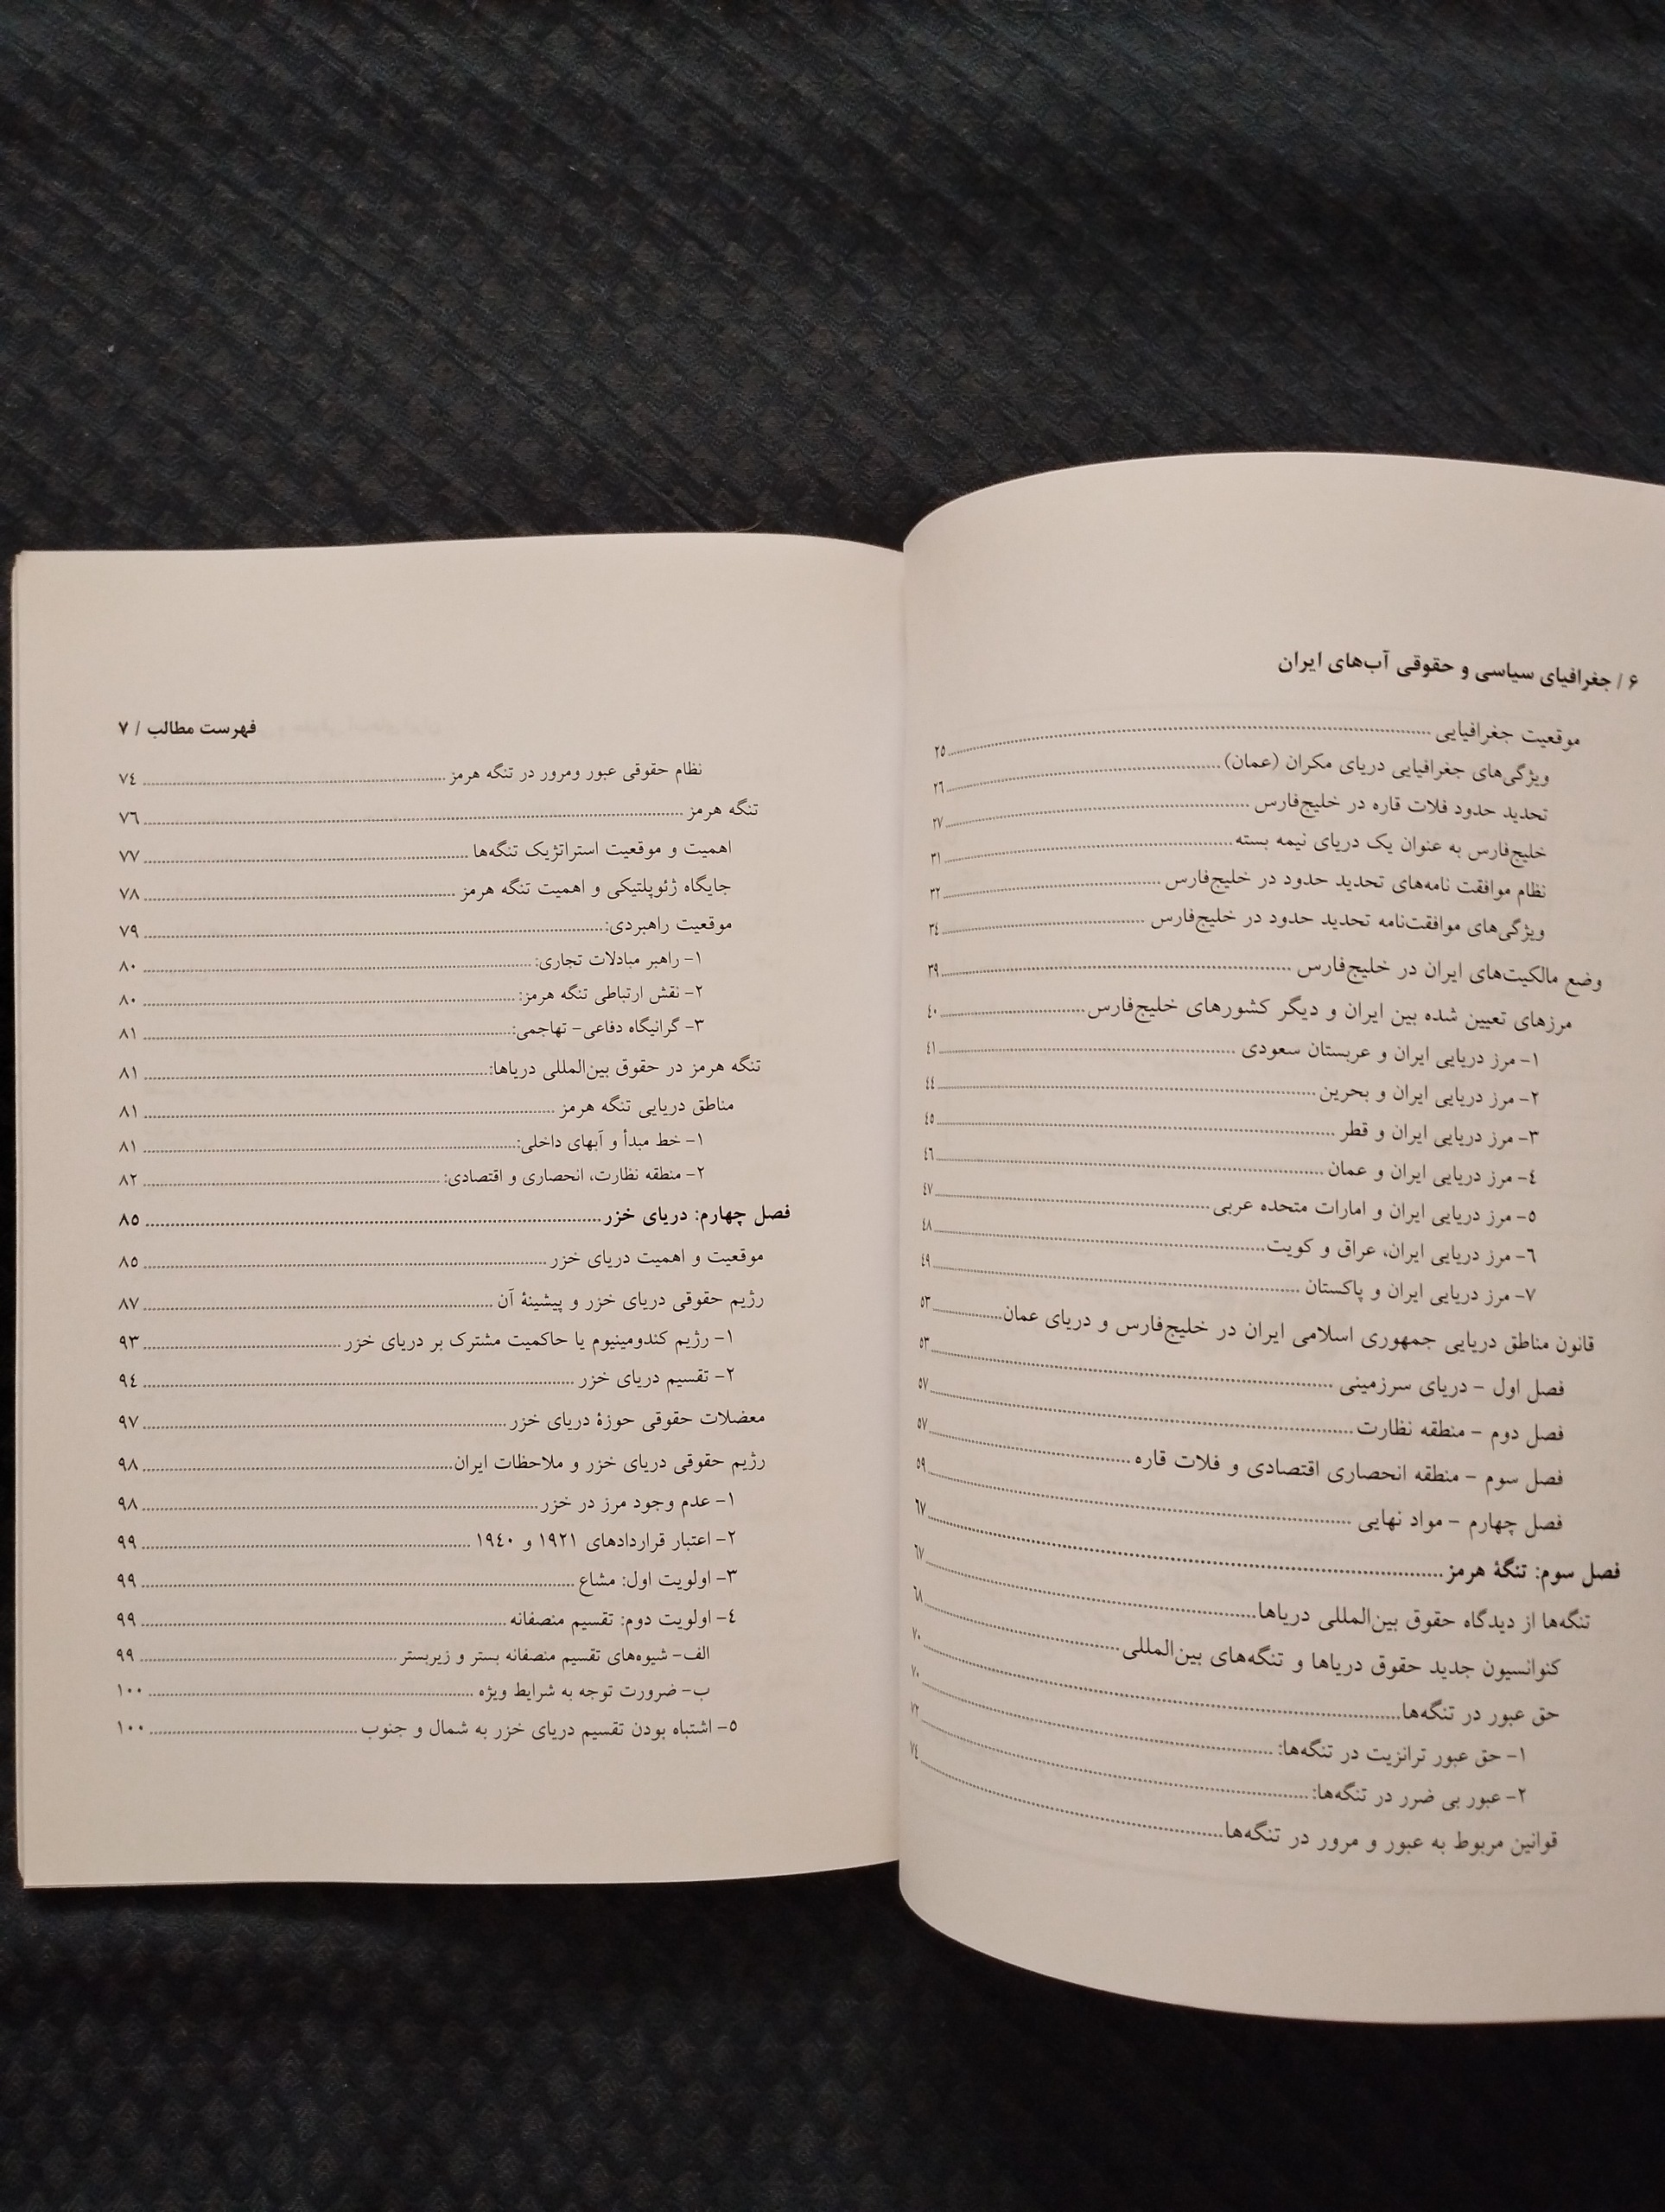 ۶ / جغرافیای سیاسی و حقوقی آب‌های ایران
موقعیت جغرافیایی ........ ٢٥
ویژگی‌های جغرافیایی دریای مکران (عمان) ........ ٢٦
تحدید حدود فلات قاره در خلیج‌فارس ........ ٢٧
خلیج‌فارس به عنوان یک دریای نیمه بسته ........ ٣١
نظام موافقت نامه‌های تحدید حدود در خلیج‌فارس ........ ٣٢
ویژگی‌های موافقت‌نامه تحدید حدود در خلیج‌فارس ........ ٣٤
وضع مالکیت‌های ایران در خلیج‌فارس ........ ٣٩
مرزهای تعیین شده بین ایران و دیگر کشورهای خلیج‌فارس ........ ٤٠
١- مرز دریایی ایران و عربستان سعودی ........ ٤١
٢- مرز دریایی ایران و بحرین ........ ٤٤
٣- مرز دریایی ایران و قطر ........ ٤٥
٤- مرز دریایی ایران و عمان ........ ٤٦
٥- مرز دریایی ایران و امارات متحده عربی ........ ٤٧
٦- مرز دریایی ایران، عراق و کویت ........ ٤٨
٧- مرز دریایی ایران و پاکستان ........ ٤٩
قانون مناطق دریایی جمهوری اسلامی ایران در خلیج‌فارس و دریای عمان ........ ٥٣
فصل اول - دریای سرزمینی ........ ٥٣
فصل دوم - منطقه نظارت ........ ٥٧
فصل سوم - منطقه انحصاری اقتصادی و فلات قاره ........ ٥٧
فصل چهارم - مواد نهایی ........ ٥٩
فصل سوم: تنگۀ هرمز ........ ٦٧
تنگه‌ها از دیدگاه حقوق بین‌المللی دریاها ........ ٦٧
کنوانسیون جدید حقوق دریاها و تنگه‌های بین‌المللی ........ ٦٨
حق عبور در تنگه‌ها ........ ٧٠
١- حق عبور ترانزیت در تنگه‌ها: ........ ٧٠
٢- عبور بی ضرر در تنگه‌ها: ........ ٧٢
قوانین مربوط به عبور و مرور در تنگه‌ها ........ ٧٤
فهرست مطالب / ۷
نظام حقوقی عبور ومرور در تنگه هرمز ........ ٧٤
تنگه هرمز ........ ٧٦
اهمیت و موقعیت استراتژیک تنگه‌ها ........ ٧٧
جایگاه ژئوپلتیکی و اهمیت تنگه هرمز ........ ٧٨
موقعیت راهبردی: ........ ٧٩
١- راهبر مبادلات تجاری: ........ ٨٠
٢- نقش ارتباطی تنگه هرمز: ........ ٨٠
٣- گرانیگاه دفاعی- تهاجمی: ........ ٨١
تنگه هرمز در حقوق بین‌المللی دریاها: ........ ٨١
مناطق دریایی تنگه هرمز ........ ٨١
١- خط مبدأ و آبهای داخلی: ........ ٨١
٢- منطقه نظارت، انحصاری و اقتصادی: ........ ٨٢
فصل چهارم: دریای خزر ........ ٨٥
موقعیت و اهمیت دریای خزر ........ ٨٥
رژیم حقوقی دریای خزر و پیشینۀ آن ........ ٨٧
١- رژیم کندومینیوم یا حاکمیت مشترک بر دریای خزر ........ ٩٣
٢- تقسیم دریای خزر ........ ٩٤
معضلات حقوقی حوزۀ دریای خزر ........ ٩٧
رژیم حقوقی دریای خزر و ملاحظات ایران ........ ٩٨
١- عدم وجود مرز در خزر ........ ٩٨
٢- اعتبار قراردادهای ١٩٢١ و ١٩٤٠ ........ ٩٩
٣- اولویت اول: مشاع ........ ٩٩
٤- اولویت دوم: تقسیم منصفانه ........ ٩٩
الف- شیوه‌های تقسیم منصفانه بستر و زیربستر ........ ٩٩
ب- ضرورت توجه به شرایط ویژه ........ ١٠٠
٥- اشتباه بودن تقسیم دریای خزر به شمال و جنوب ........ ١٠٠